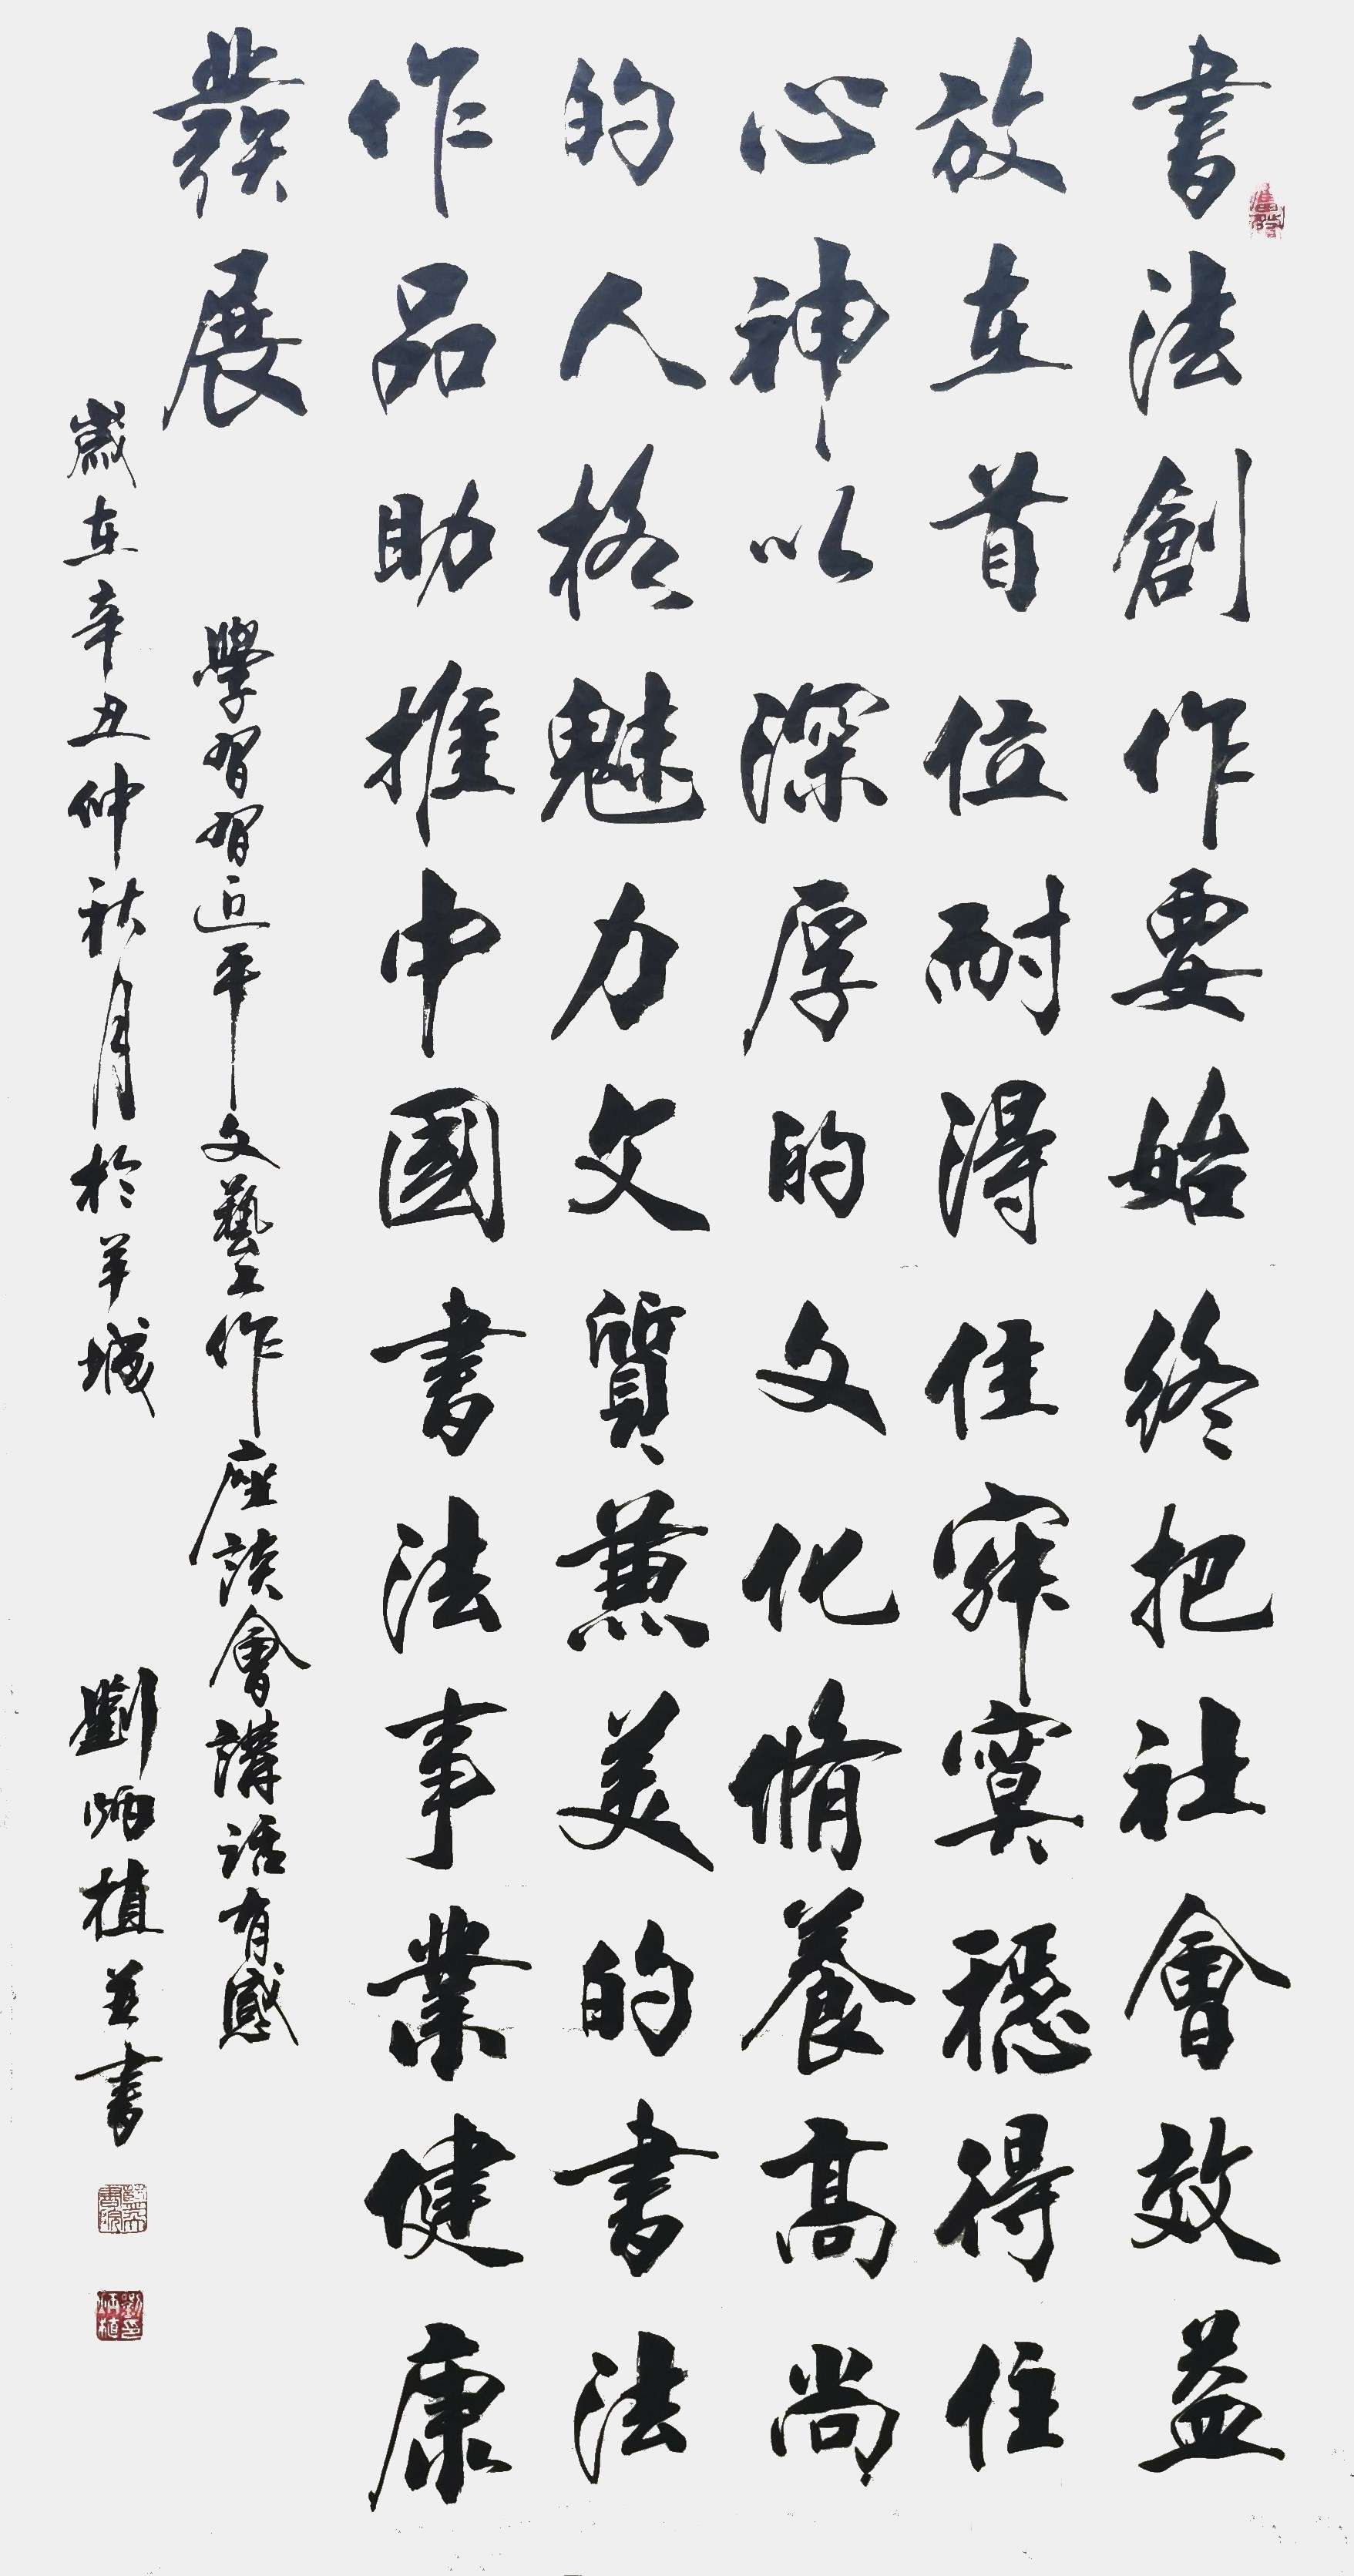 書法創作要始終把社會效益
放在首位耐得住寂寞穩得住
心神以深厚的文化脩養高尚
的人格魅力文質兼美的書法
作品助推中國書法事業健康
發展
學習習近平文藝工作座談會講話有感
歲在辛丑仲秋月於羊城 劉炳植並書